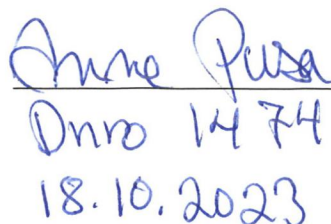 Anne Pusa
Dnro 1474
18.10.2023